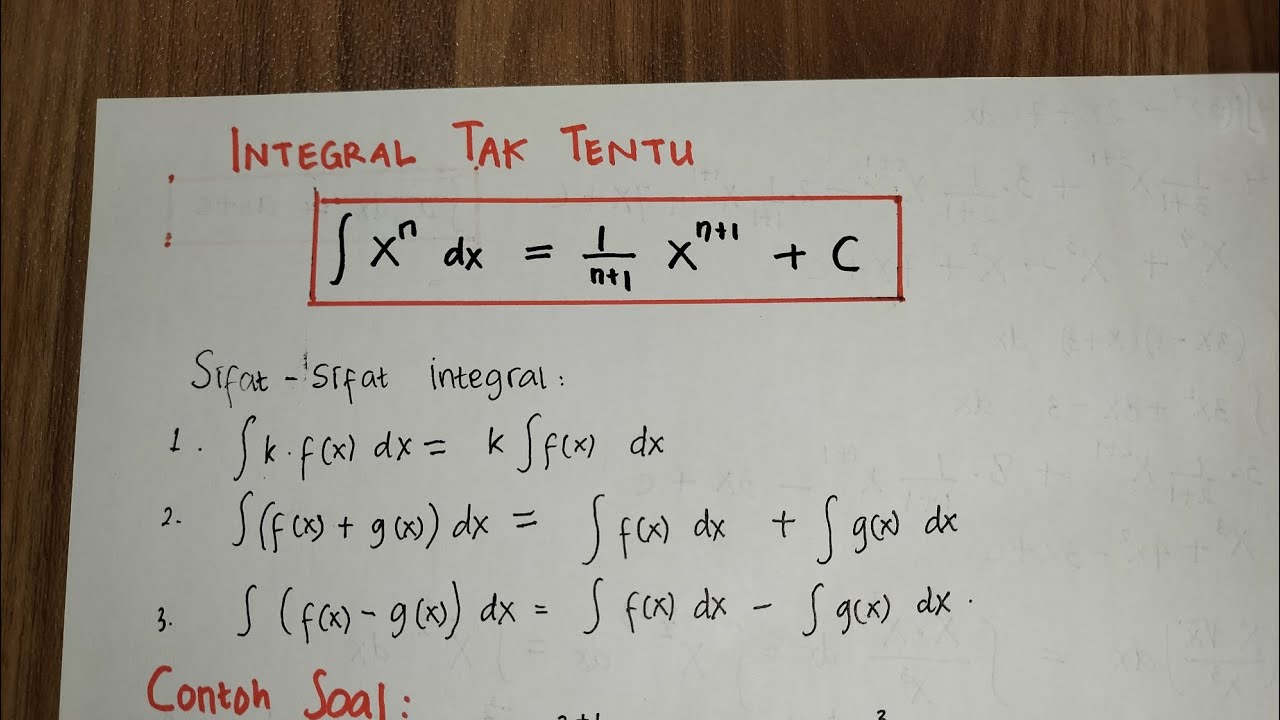 INTEGRAL TAK TENTU
∫ x^n dx = 1/(n+1) x^(n+1) + C
Sifat - Sifat integral :
1. ∫ k . f(x) dx = k ∫ f(x) dx
2. ∫ (f(x) + g(x)) dx = ∫ f(x) dx + ∫ g(x) dx
3. ∫ (f(x) - g(x)) dx = ∫ f(x) dx - ∫ g(x) dx .
Contoh Soal :